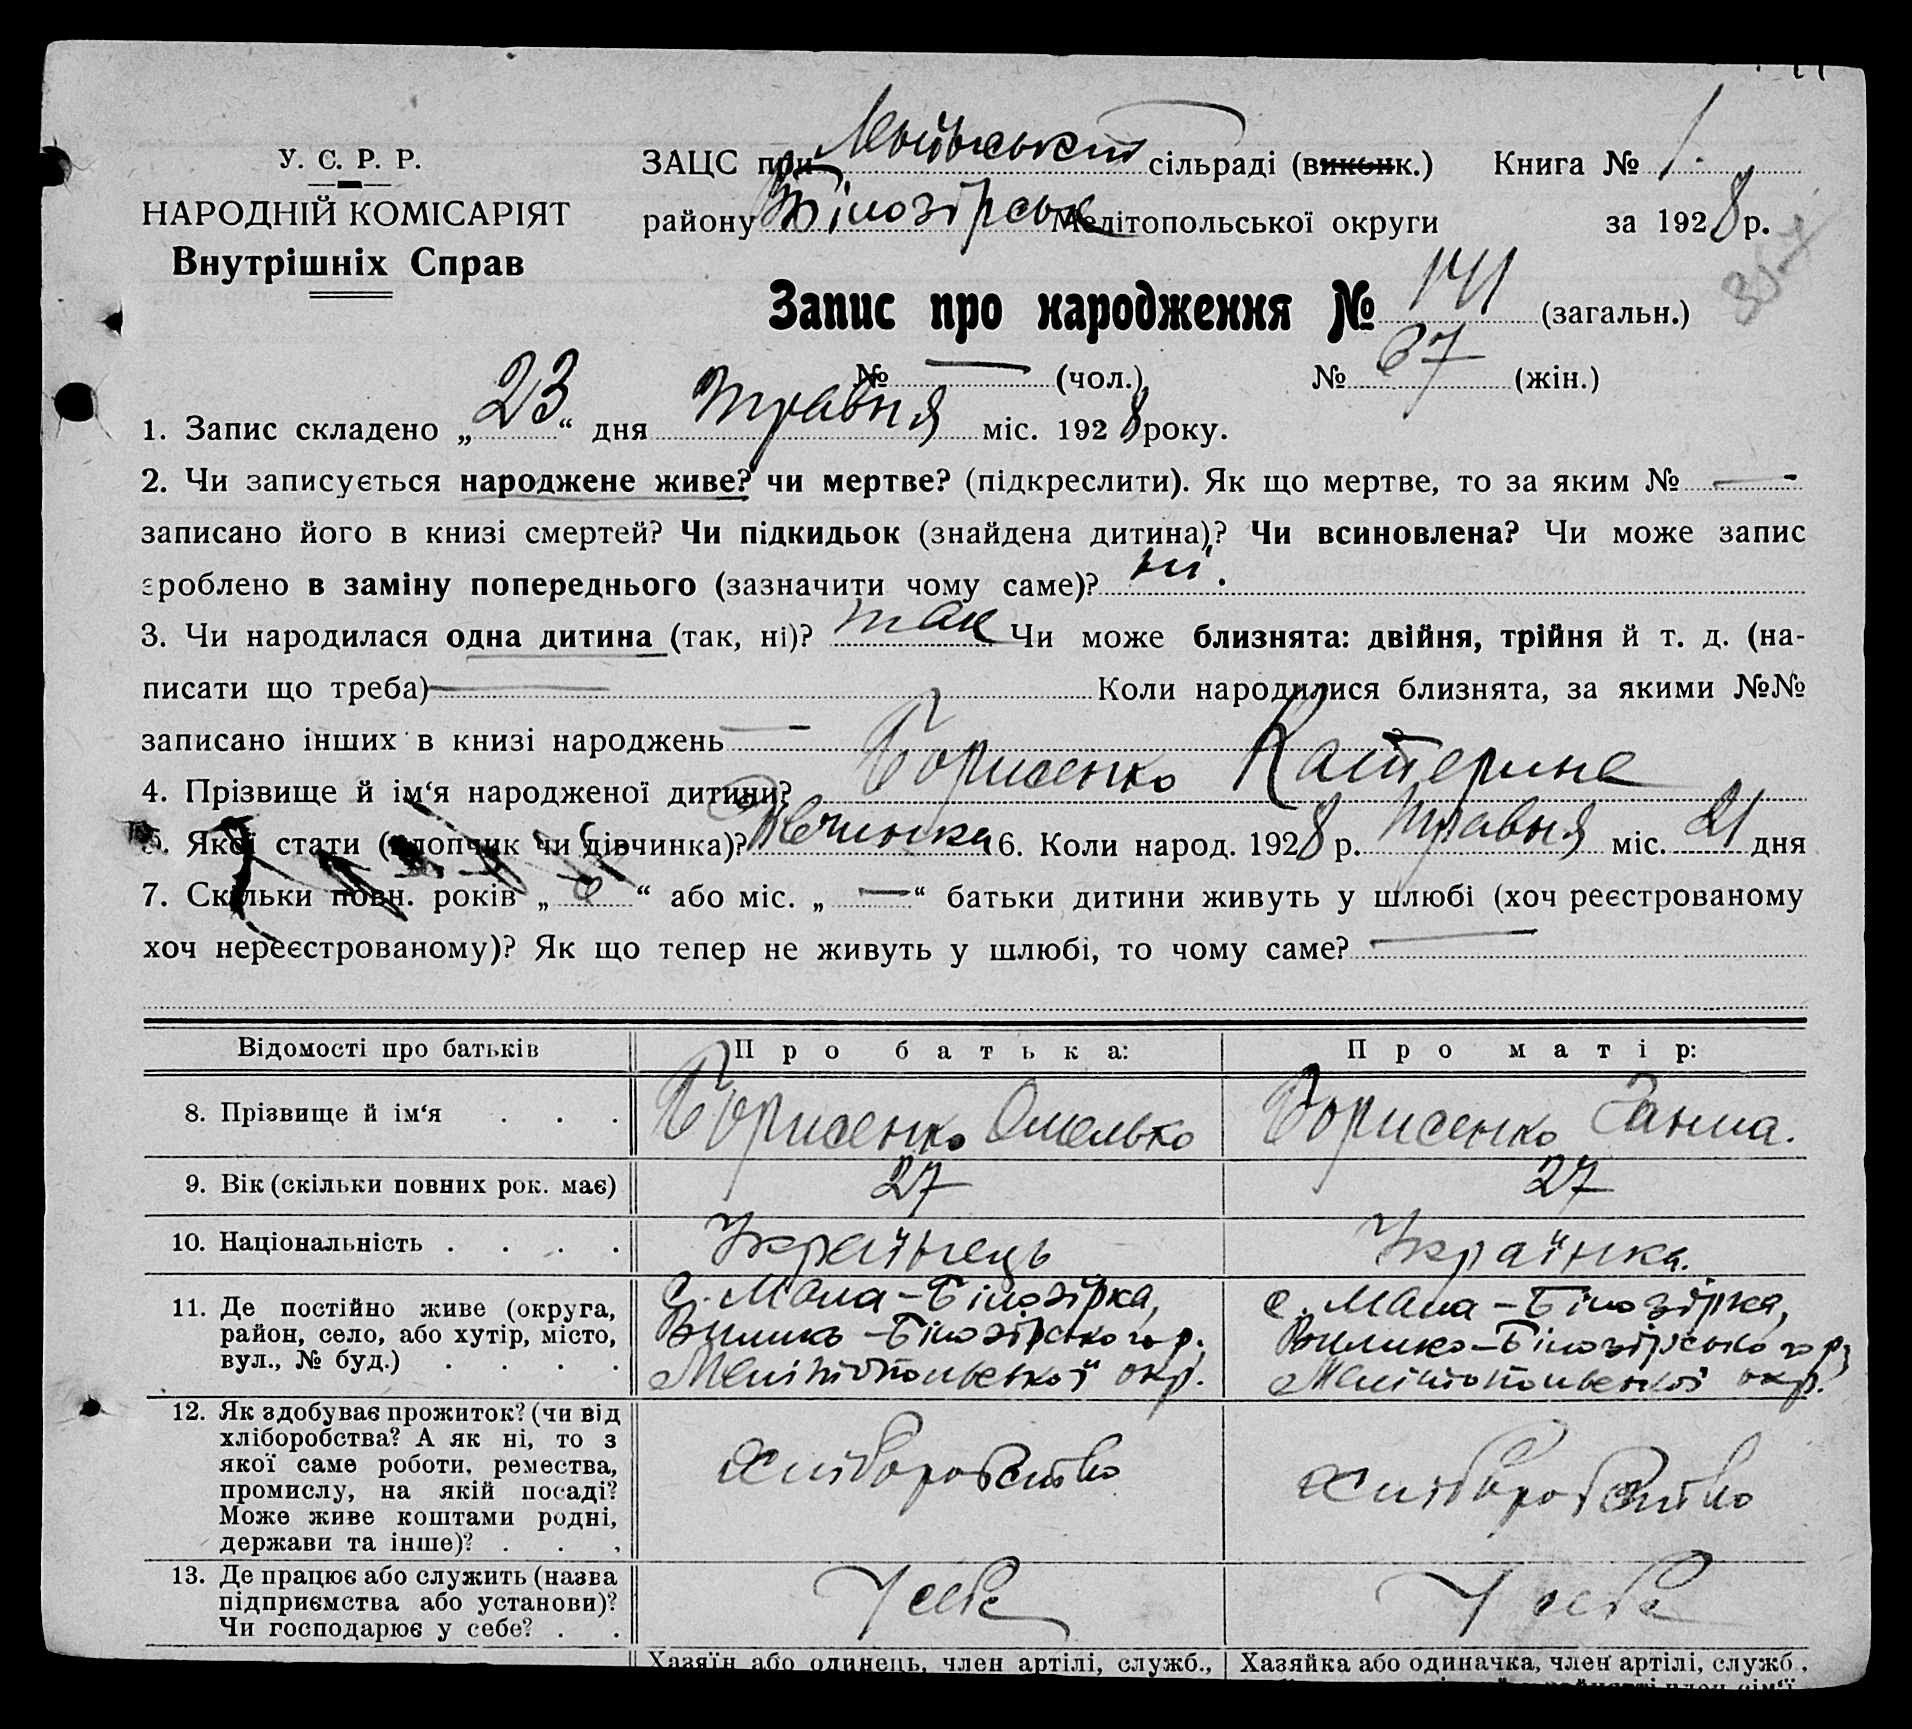 У. С. Р. Р.
НАРОДНІЙ КОМІСАРІЯТ
Внутрішніх Справ
ЗАЦС при сільраді (виконк.) Книга № 1.
району Білозірськ Мелітопольської округи за 1928 р.
Запис про народження № 141 (загальн.)
№ — (чол.) № 67 (жін.)
1. Запис складено „23“ дня травня міс. 1928 року.
2. Чи записується народжене живе? чи мертве? (підкреслити). Як що мертве, то за яким № —
записано його в книзі смертей? Чи підкидьок (знайдена дитина)? Чи всиновлена? Чи може запис
зроблено в заміну попереднього (зазначити чому саме)? ні.
3. Чи народилася одна дитина (так, ні)? так Чи може близнята: двійня, трійня й т. д. (на-
писати що треба) — Коли народилися близнята, за якими №№
записано інших в книзі народжень —
4. Прізвище й ім‘я народженої дитини? Борисенко Катерина
5. Якої стати (хлопчик чи дівчинка)? Дівчинка 6. Коли народ. 1928 р. травня міс. 21 дня
7. Скільки повн. років „6“ або міс. „—“ батьки дитини живуть у шлюбі (хоч реєстрованому
хоч нереєстрованому)? Як що тепер не живуть у шлюбі, то чому саме? —
Відомості про батьків Про батька: Про матір:
8. Прізвище й ім‘я . . . Борисенко Омелько Борисенко Ганна.
9. Вік (скільки повних рок. має) 27 27
10. Національність . . . . Українець Українка.
11. Де постійно живе (округа, с. Мала-Білозірка, с. Мала-Білозірка,
район, село, або хутір, місто, Велико-Білозірського р. Велико-Білозірського р,
вул., № буд.) . . . . Мелітопольської окр. Мелітопольської окр.
12. Як здобуває прожиток? (чи від
хліборобства? А як ні, то з
якої саме роботи, ремества, хліборобство хліборобство
промислу, на якій посаді?
Може живе коштами родні,
держави та інше)? . . .
13. Де працює або служить (назва
підприємства або установи)? У себе У себе
Чи господарює у себе? . .
Хазяїн або одинець, член артілі, служб., Хазяйка або одиначка, член артілі, служб.,